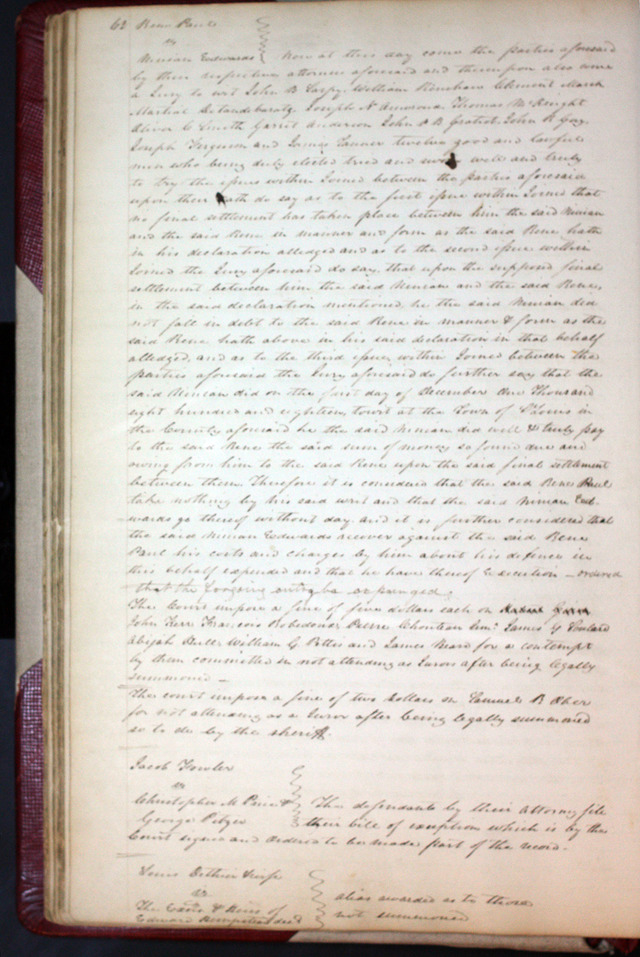 62 Rene Paul
vs
Ninian Edwards } Now at this day comes the parties aforesaid
by their respective attornies aforesaid and thereupon also came
a Jury to wit John B Sarpy William Renshaw Clement
Martial Joseph N Thomas McKnight
Oliver C Smith Garrit Anderson John B Gratiot John R Guy
Joseph Ferguson and James Tanner twelve good and lawful
men who being duly elected tried and sworn well and truly
to try the issues within Joined between the parties aforesaid
upon their oath do say as to the first issue within Joined that
no final settlement has taken place between him the said Ninian
and the said Rene in manner and form as the said Rene hath
in his declaration alledged and as to the second issue within
Joined the Jury aforesaid do say, that upon the supposed final
settlement between him the said Ninian and the said Rene,
in the said declaration mentioned he the said Ninian did
not fall in debt to the said Rene in manner & form as the
said Rene hath above in his said declaration in that behalf
alledged, and as to the third issue, within Joined between the
parties aforesaid the Jury aforesaid do further say that the
said Ninian did on the first day of December One Thousand
eight hundred and eighteen, towit at the Town of St Louis in
the County aforesaid he the said Ninian did well & truly pay
to the said Rene the said sum of money so found due and
owing from him to the said Rene upon the said final settlement
between them Therefore it is considered that the said Rene Paul
take nothing by his said writ and that the said Ninian Ed-
wards go thereof without day and it is further considered that
the said Ninian Edwards recover against the said Rene
Paul his costs and charges by him about his defence in
this behalf expended and that he have thereof Execution – ordered
that the forgoing entry be expunged.
The Court impose a fine of five dollars each on
John Kerr Francois Robedeau Pierre Chouteau Junr James G Soulard
Abijah Hull William G Pettis and James Neard for a contempt
by them committed in not attending as Jurors after being legally
summoned –
The court impose a fine of two dollars on Samuel B Ober
for not attending as a Juror after being legally summoned
so to do by the sheriff.
Jacob Fowler
vs
Christopher M Price & } The defendants by their attorney file
George Pitzer their bill of exception which is by the
Court signed and Ordered to be made part of the record.
Louis
vs
The Exors & Heirs of } alias awarded as to those
Edward Hempstead decd not summoned